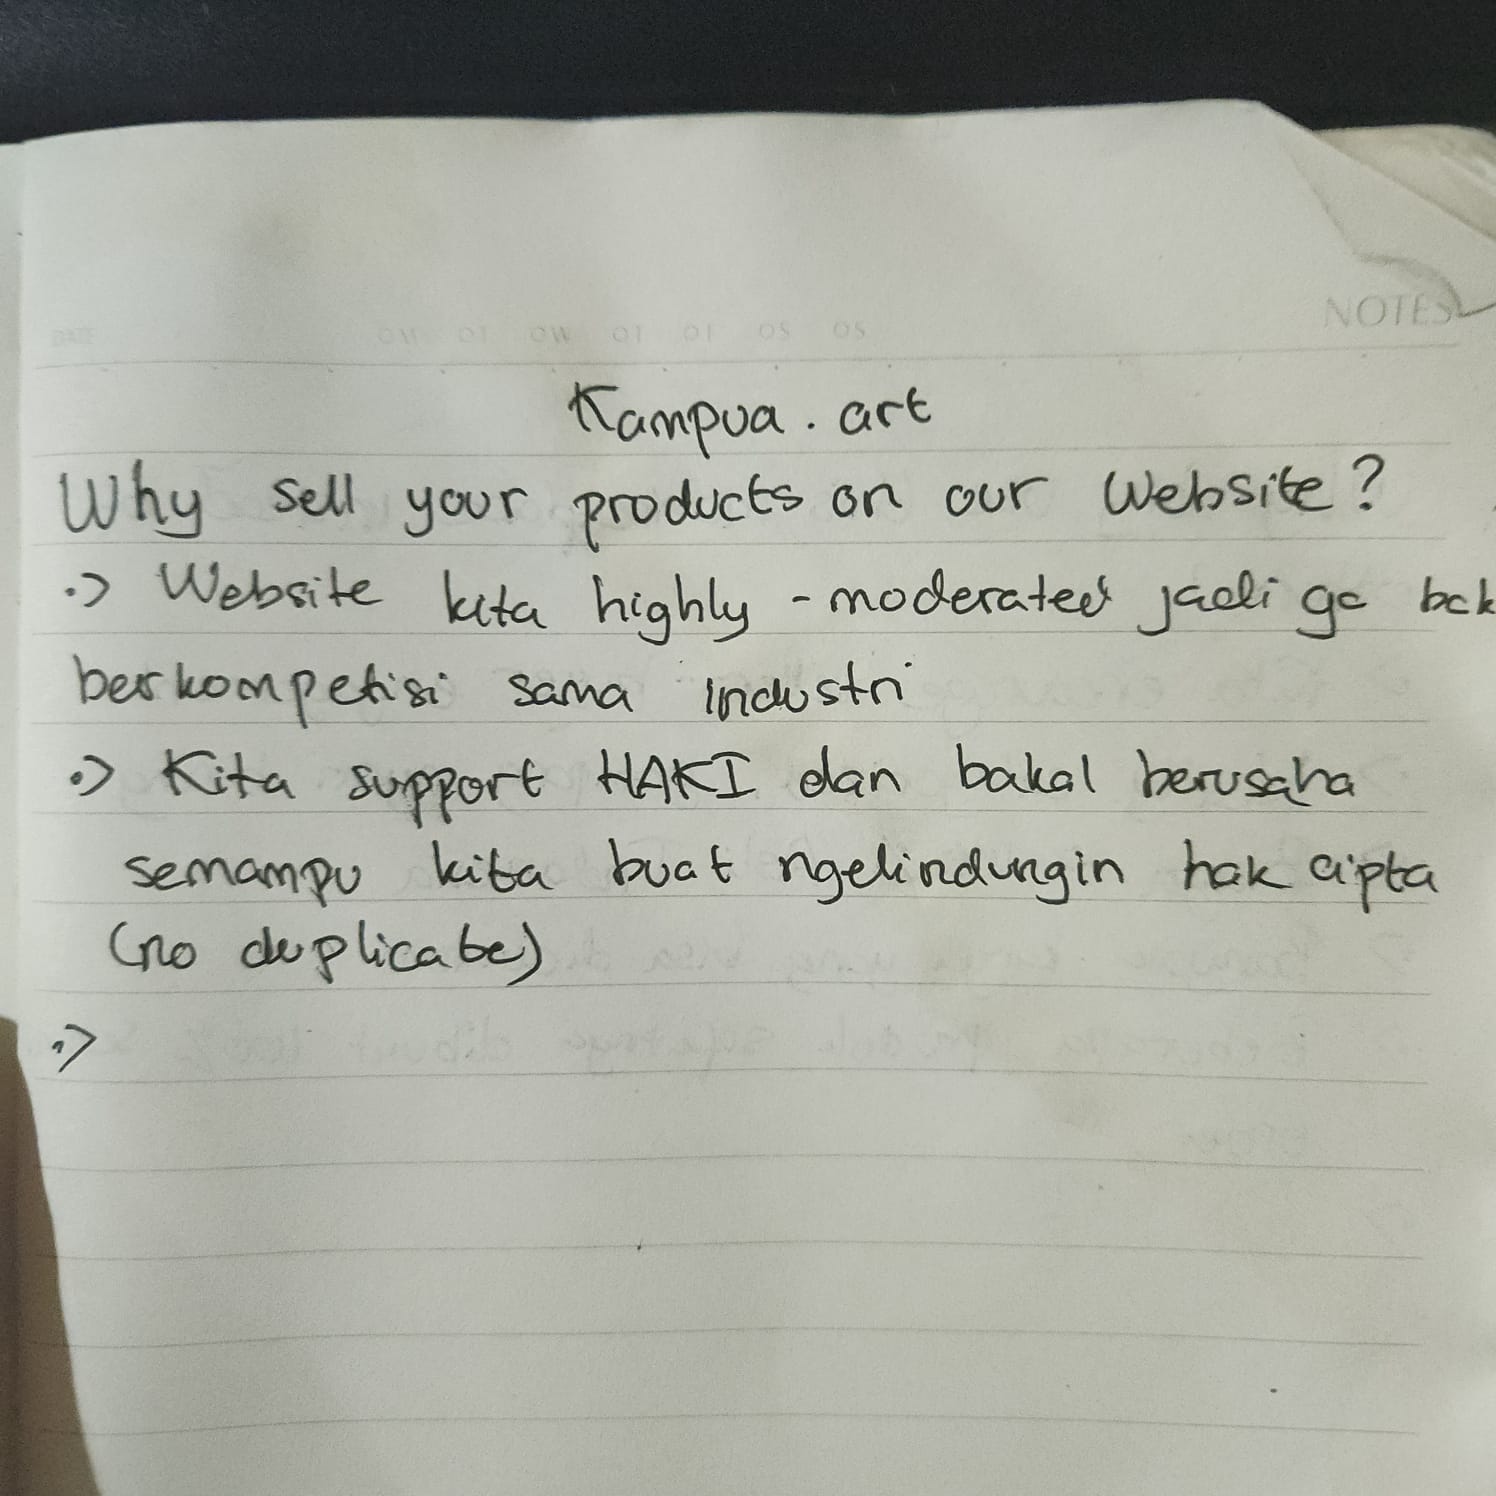 NOTES
Kampua.art
Why sell your products on our website?
·> Website kita highly-moderated jadi ga bak
berkompetisi sama industri
·> Kita support HAKI dan bakal berusaha
semampu kita buat ngelindungin hak cipta
(no duplicate)
·>